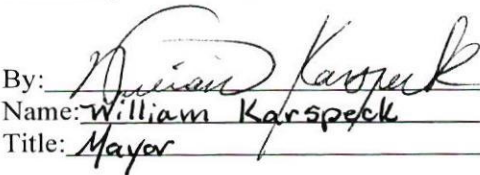 By: William Karspeck
Name: William Karspeck
Title: Mayor